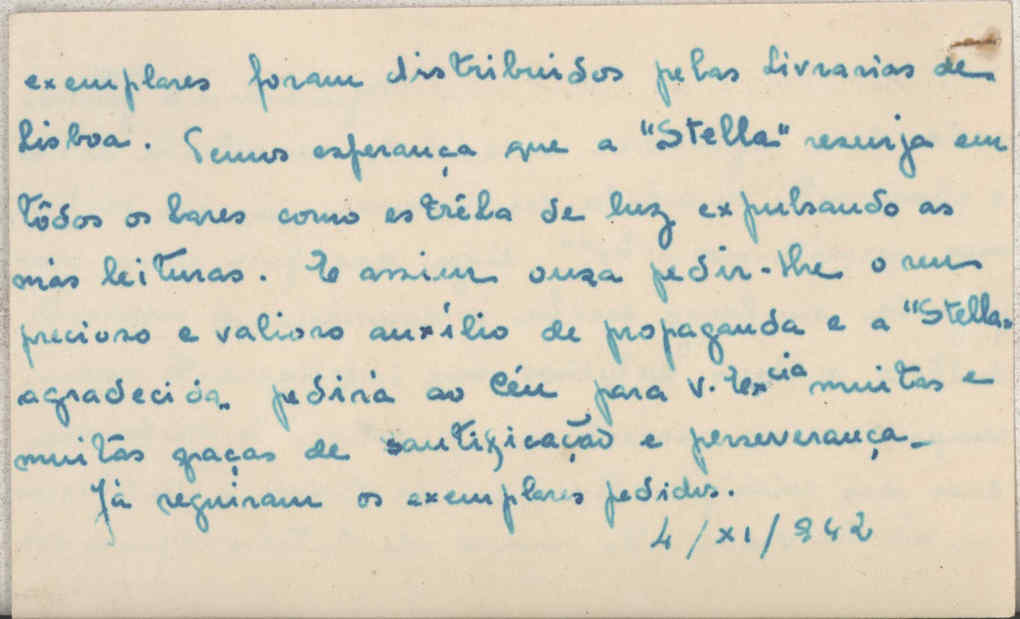 exemplares foram distribuidos pelas Livrarias de
Lisboa. Temos esperança que a "Stella" resurja em
tôdos os lares como estrêla de luz expulsando as
más leituras. E assim ousa pedir-lhe o seu
precioso e valioso auxílio de propaganda e a "Stella"
agradecida pedirá ao Céu para V. Excia muitas e
muitas graças de santificação e perseverança.
Já seguiram os exemplares pedidos.
4/XI/942